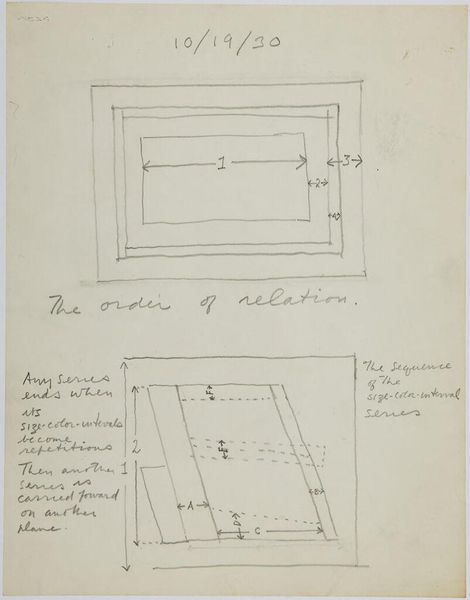 10/19/30
1
2
3
4
The order of relation.
Any series
ends when
its
size-color-intervals
become
repetitions
Then another
series is
carried forward
on another
plane.
The sequence
of the
size-color-interval
series
F
2
E
1
B
A
D
C